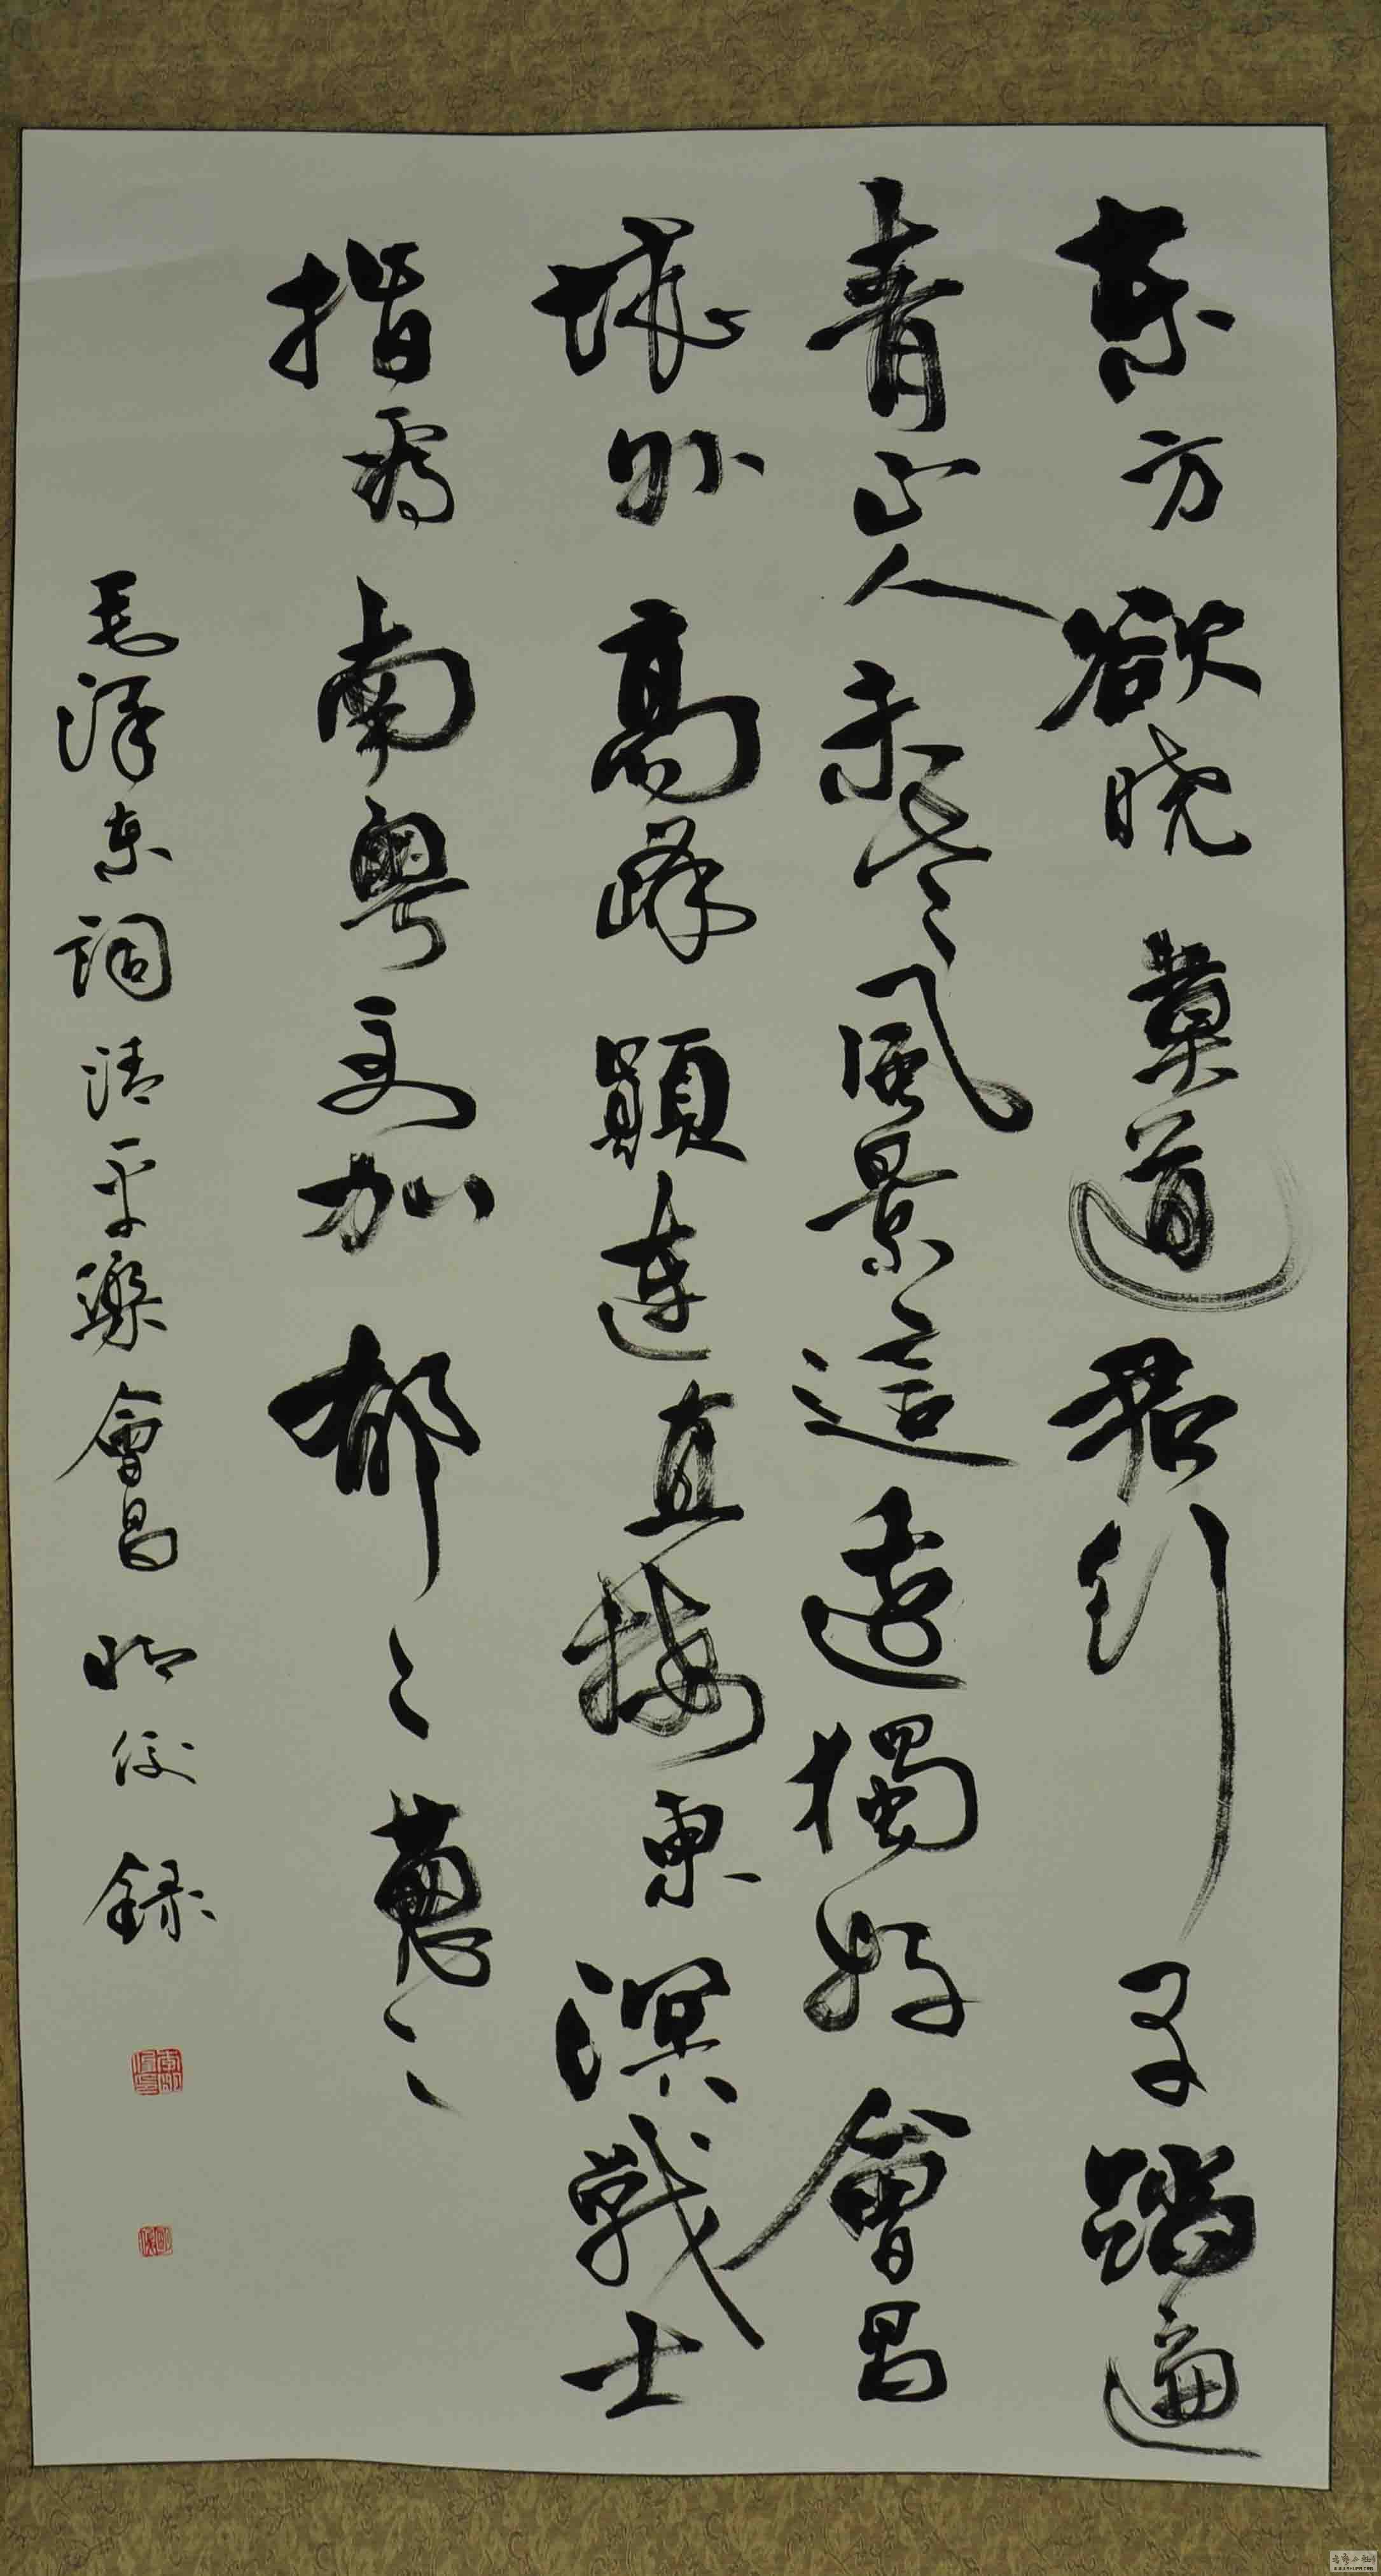 東方欲晓莫道君行早踏遍
青山人未老風景這邊獨好會昌
城外高峰顛連直接東溟戰士
指看南粤更加郁々蔥々
毛澤東詞清平樂會昌 錄